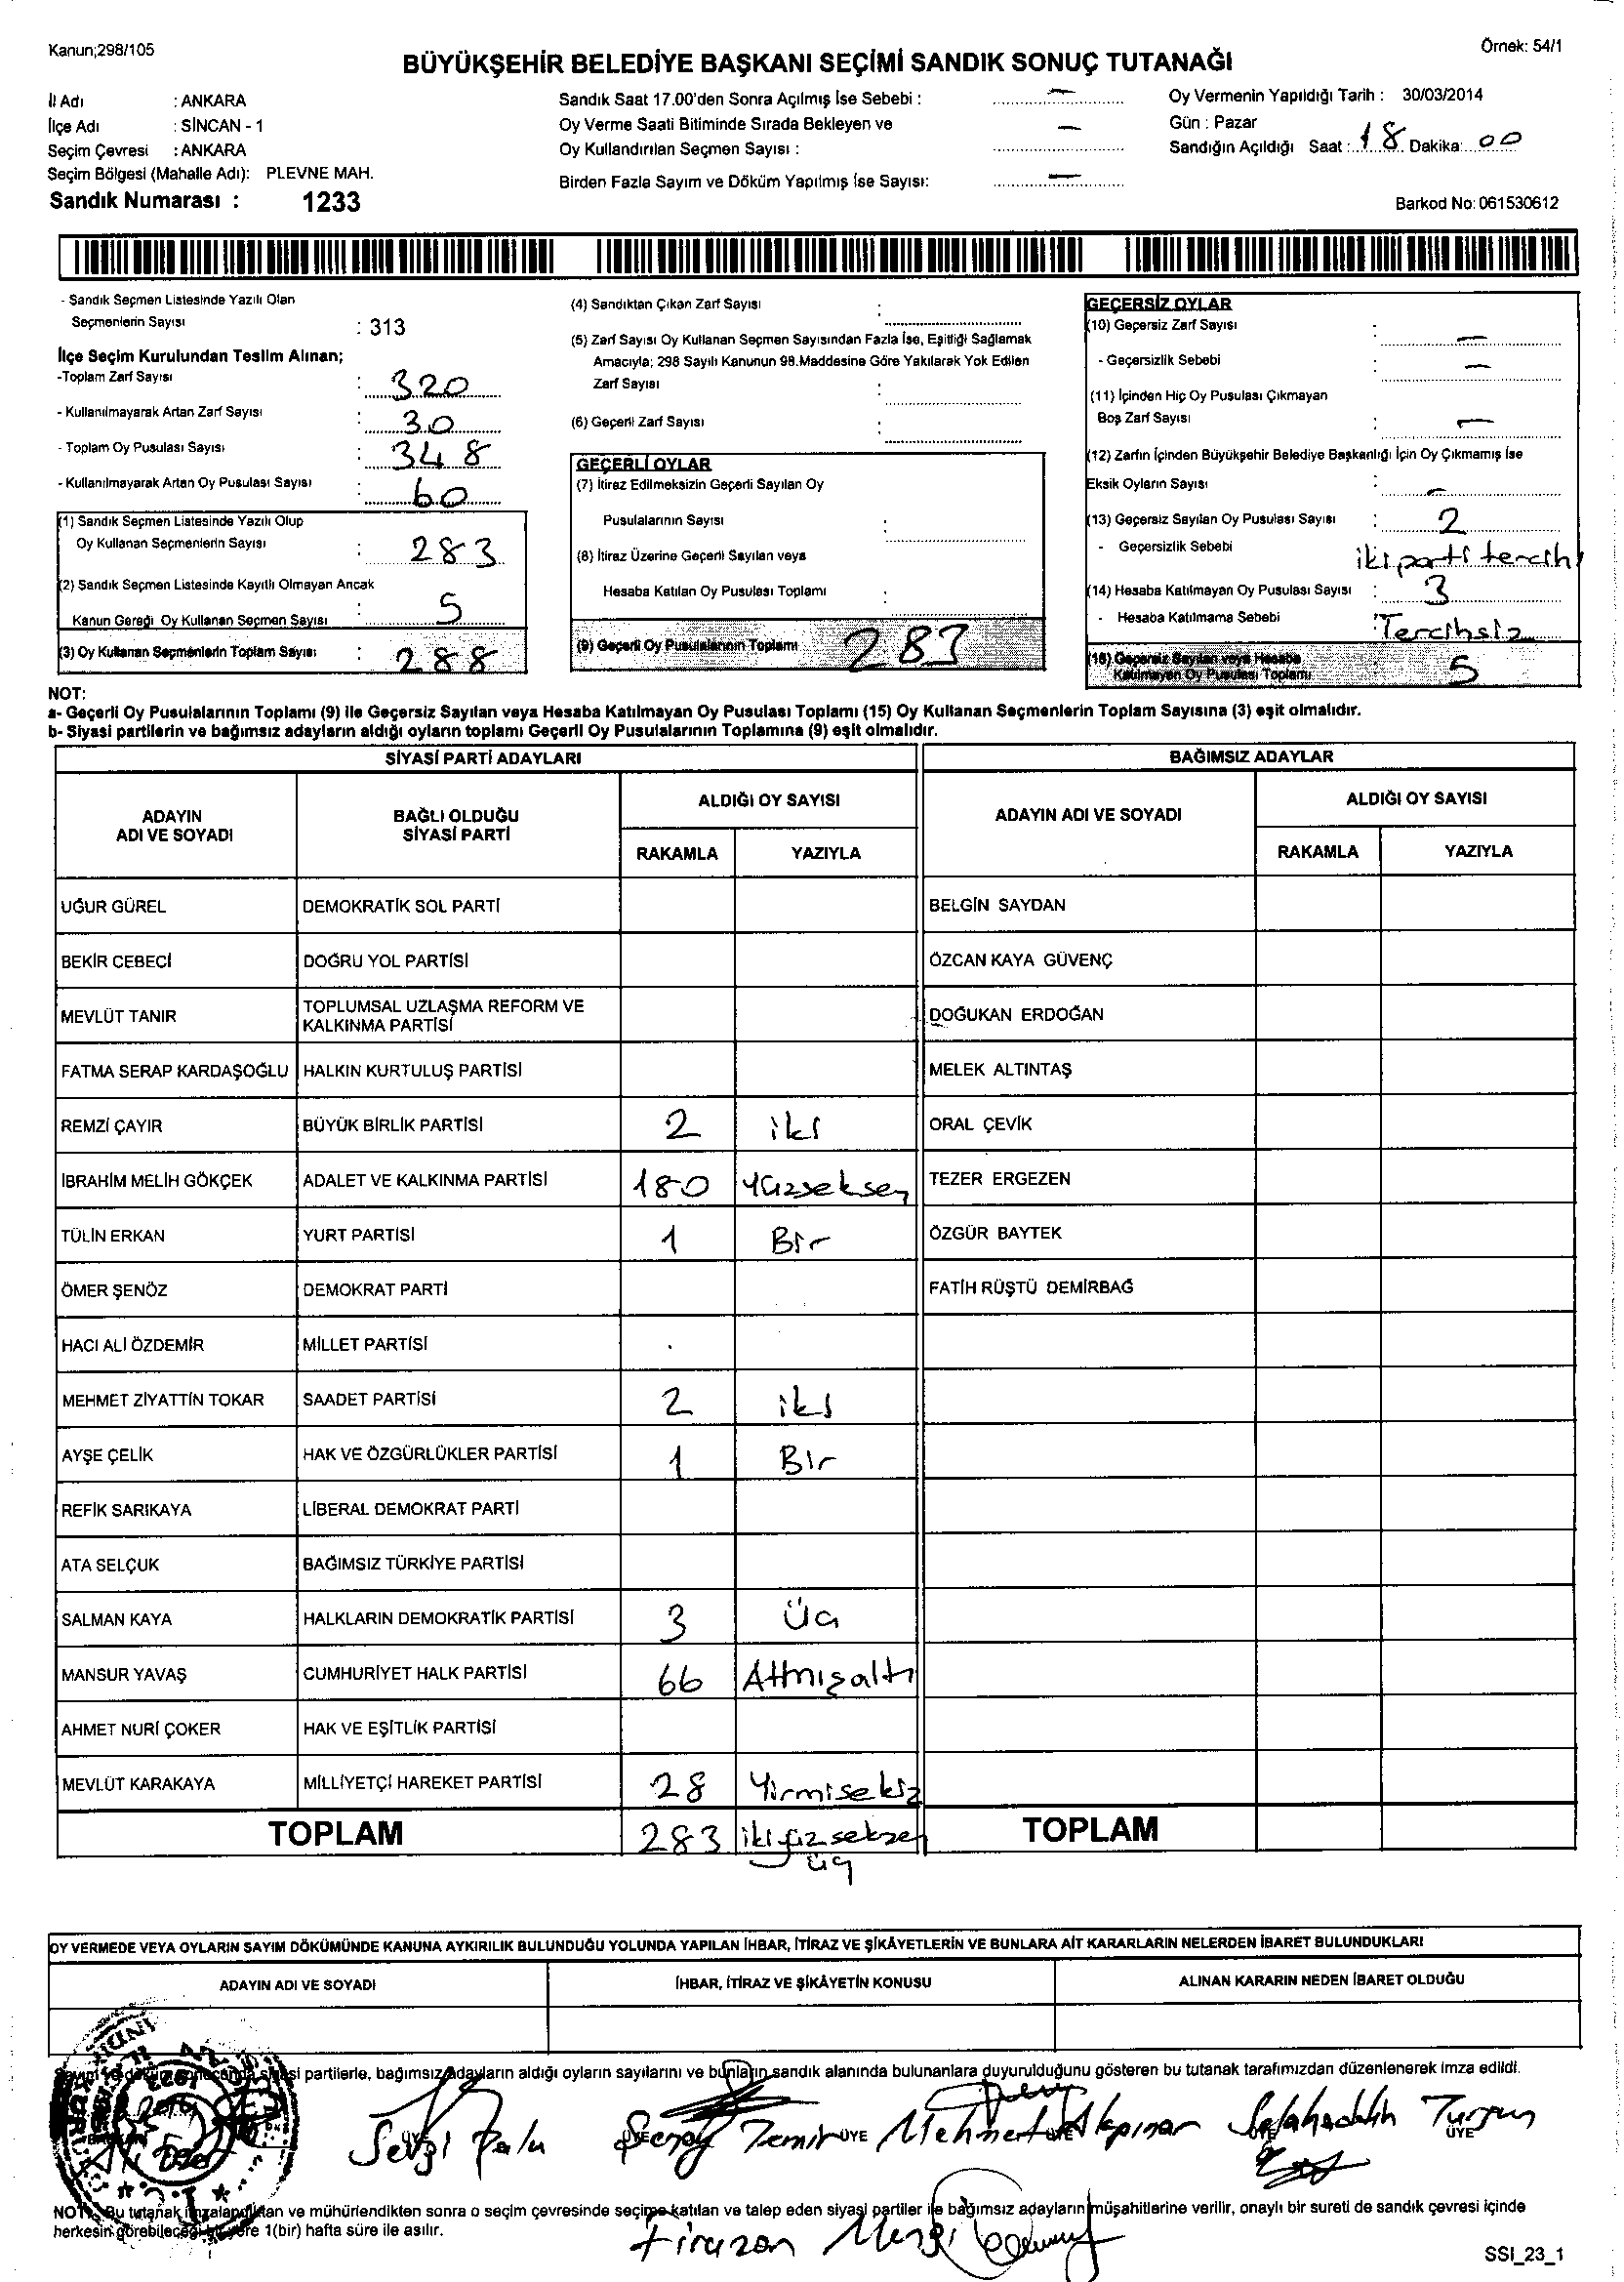 Kanun;298/105
Örnek: 54/1
BÜYÜKŞEHİR BELEDİYE BAŞKANI SEÇİMİ SANDIK SONUÇ TUTANAĞI
İl Adı : ANKARA
İlçe Adı : SİNCAN - 1
Seçim Çevresi : ANKARA
Seçim Bölgesi (Mahalle Adı): PLEVNE MAH.
Sandık Numarası : 1233
Sandık Saat 17.00'den Sonra Açılmış İse Sebebi : —
Oy Verme Saati Bitiminde Sırada Bekleyen ve
Oy Kullandırılan Seçmen Sayısı : —
Birden Fazla Sayım ve Döküm Yapılmış İse Sayısı: —
Oy Vermenin Yapıldığı Tarih : 30/03/2014
Gün : Pazar
Sandığın Açıldığı Saat : 18 Dakika: 00
Barkod No: 061530612
- Sandık Seçmen Listesinde Yazılı Olan
Seçmenlerin Sayısı : 313
İlçe Seçim Kurulundan Teslim Alınan;
-Toplam Zarf Sayısı : 320
- Kullanılmayarak Artan Zarf Sayısı : 30
- Toplam Oy Pusulası Sayısı : 348
- Kullanılmayarak Artan Oy Pusulası Sayısı : 60
(1) Sandık Seçmen Listesinde Yazılı Olup
Oy Kullanan Seçmenlerin Sayısı : 283
(2) Sandık Seçmen Listesinde Kayıtlı Olmayan Ancak
Kanun Gereği Oy Kullanan Seçmen Sayısı : 5
(3) Oy Kullanan Seçmenlerin Toplam Sayısı : 288
(4) Sandıktan Çıkan Zarf Sayısı :
(5) Zarf Sayısı Oy Kullanan Seçmen Sayısından Fazla İse, Eşitliği Sağlamak
Amacıyla; 298 Sayılı Kanunun 98.Maddesine Göre Yakılarak Yok Edilen
Zarf Sayısı :
(6) Geçerli Zarf Sayısı :
GEÇERLİ OYLAR
(7) İtiraz Edilmeksizin Geçerli Sayılan Oy
Pusulalarının Sayısı :
(8) İtiraz Üzerine Geçerli Sayılan veya
Hesaba Katılan Oy Pusulası Toplamı :
(9) Geçerli Oy Pusulalarının Toplamı 283
GEÇERSİZ OYLAR
(10) Geçersiz Zarf Sayısı : —
- Geçersizlik Sebebi : —
(11) İçinden Hiç Oy Pusulası Çıkmayan
Boş Zarf Sayısı : —
(12) Zarfın İçinden Büyükşehir Belediye Başkanlığı İçin Oy Çıkmamış İse
Eksik Oyların Sayısı : —
(13) Geçersiz Sayılan Oy Pusulası Sayısı : 2
- Geçersizlik Sebebi iki parti tercihi
(14) Hesaba Katılmayan Oy Pusulası Sayısı : 3
- Hesaba Katılmama Sebebi : Tercihsiz
(15) Geçersiz Sayılan veya Hesaba
Katılmayan Oy Pusulası Toplamı 5
NOT:
a- Geçerli Oy Pusulalarının Toplamı (9) ile Geçersiz Sayılan veya Hesaba Katılmayan Oy Pusulası Toplamı (15) Oy Kullanan Seçmenlerin Toplam Sayısına (3) eşit olmalıdır.
b- Siyasi partilerin ve bağımsız adayların aldığı oyların toplamı Geçerli Oy Pusulalarının Toplamına (9) eşit olmalıdır.
SİYASİ PARTİ ADAYLARI BAĞIMSIZ ADAYLAR
ADAYIN ADI VE SOYADI BAĞLI OLDUĞU SİYASİ PARTİ ALDIĞI OY SAYISI ADAYIN ADI VE SOYADI ALDIĞI OY SAYISI
RAKAMLA YAZIYLA RAKAMLA YAZIYLA
UĞUR GÜREL DEMOKRATİK SOL PARTİ BELGİN SAYDAN
BEKİR CEBECİ DOĞRU YOL PARTİSİ ÖZCAN KAYA GÜVENÇ
MEVLÜT TANIR TOPLUMSAL UZLAŞMA REFORM VE KALKINMA PARTİSİ DOĞUKAN ERDOĞAN
FATMA SERAP KARDAŞOĞLU HALKIN KURTULUŞ PARTİSİ MELEK ALTINTAŞ
REMZİ ÇAYIR BÜYÜK BİRLİK PARTİSİ 2 iki ORAL ÇEVİK
İBRAHİM MELİH GÖKÇEK ADALET VE KALKINMA PARTİSİ 180 Yüzseksen TEZER ERGEZEN
TÜLİN ERKAN YURT PARTİSİ 1 Bir ÖZGÜR BAYTEK
ÖMER ŞENÖZ DEMOKRAT PARTİ FATİH RÜŞTÜ DEMİRBAĞ
HACI ALİ ÖZDEMİR MİLLET PARTİSİ
MEHMET ZİYATTİN TOKAR SAADET PARTİSİ 2 iki
AYŞE ÇELİK HAK VE ÖZGÜRLÜKLER PARTİSİ 1 Bir
REFİK SARIKAYA LİBERAL DEMOKRAT PARTİ
ATA SELÇUK BAĞIMSIZ TÜRKİYE PARTİSİ
SALMAN KAYA HALKLARIN DEMOKRATİK PARTİSİ 3 Üç
MANSUR YAVAŞ CUMHURİYET HALK PARTİSİ 66 Atmışaltı
AHMET NURİ ÇOKER HAK VE EŞİTLİK PARTİSİ
MEVLÜT KARAKAYA MİLLİYETÇİ HAREKET PARTİSİ 28 Yirmisekiz
TOPLAM 283 iki yüz seksen üç TOPLAM
OY VERMEDE VEYA OYLARIN SAYIM DÖKÜMÜNDE KANUNA AYKIRILIK BULUNDUĞU YOLUNDA YAPILAN İHBAR, İTİRAZ VE ŞİKÂYETLERİN VE BUNLARA AİT KARARLARIN NELERDEN İBARET BULUNDUKLARI
ADAYIN ADI VE SOYADI İHBAR, İTİRAZ VE ŞİKÂYETİN KONUSU ALINAN KARARIN NEDEN İBARET OLDUĞU
partilerle, bağımsız adayların aldığı oyların sayılarını ve bunların sandık alanında bulunanlara duyurulduğunu gösteren bu tutanak tarafımızdan düzenlenerek imza edildi.
Sevgi Şenay Temir ÜYE Mehmet Akpınar Selahaddin Turgun ÜYE
NOT: Bu tutanak imzalandıktan ve mühürlendikten sonra o seçim çevresinde seçime katılan ve talep eden siyasi partiler ile bağımsız adayların müşahitlerine verilir, onaylı bir sureti de sandık çevresi içinde
herkesin görebileceği bir yere 1(bir) hafta süre ile asılır.
Firuzan
SSI_23_1